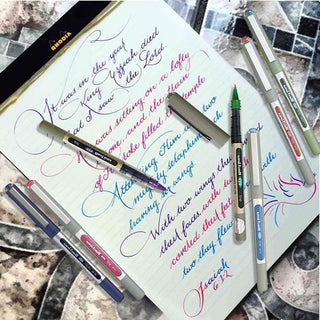 RHODIA
It was in the year
King Uzziah died
that I saw the Lord
He was sitting on a lofty
throne, and the train
of His robe filled the temple
Attending Him were two
mighty seraphim, each
having six wings
With two wings they
their faces, with two
covered their feet
two they flew
Isaiah
6:1-2